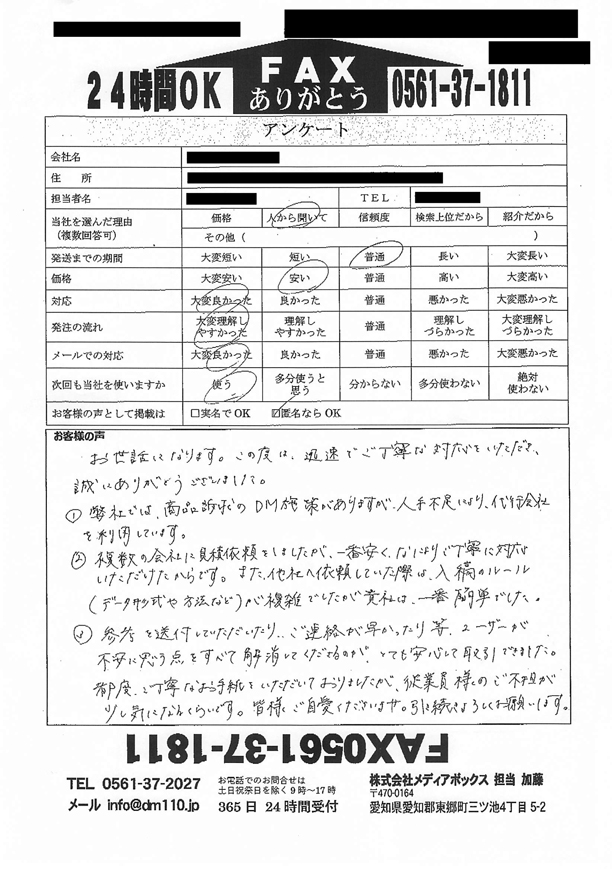 24時間OK
FAX
ありがとう
0561-37-1811
アンケート
会社名
住 所
担当者名 TEL
当社を選んだ理由(複数回答可) 価格 人から聞いて 信頼度 検索上位だから 紹介だから
その他 ( )
発送までの期間 大変短い 短い 普通 長い 大変長い
価格 大変安い 安い 普通 高い 大変高い
対応 大変良かった 良かった 普通 悪かった 大変悪かった
発注の流れ 大変理解しやすかった 理解しやすかった 普通 理解しづらかった 大変理解しづらかった
メールでの対応 大変良かった 良かった 普通 悪かった 大変悪かった
次回も当社を使いますか 使う 多分使うと思う 分からない 多分使わない 絶対使わない
お客様の声として掲載は □実名でOK ☑匿名ならOK
お客様の声
お世話になります。この度は、迅速でご丁寧な対応をいただき、
誠にありがとうございました。
① 弊社では、商品訴求のDM施策がありますが、人手不足により、代行会社
を利用しています。
② 複数の会社に見積依頼をしましたが、一番安く、なによりご丁寧に対応
いただけたからです。また、他社へ依頼していた際は、入稿のルール
(データ形式や方法など)が複雑でしたが貴社は、一番簡単でした。
③ 参考を送付していただいたり、ご連絡が早かったり等、ユーザーが
不安に思う点をすべて解消してくださるのが、とても安心して取引できました。
都度、ご丁寧なお手紙をいただいておりましたが、従業員様のご負担が
少し気になるくらいです。皆様ご自愛くださいませ。引き続きよろしくお願いします。
FAX0561-37-1811
TEL 0561-37-2027 お電話でのお問合せは
土日祝祭日を除く9時~17時
株式会社メディアボックス 担当 加藤
〒470-0164
メール info@dm110.jp 365日 24時間受付
愛知県愛知郡東郷町三ツ池4丁目5-2